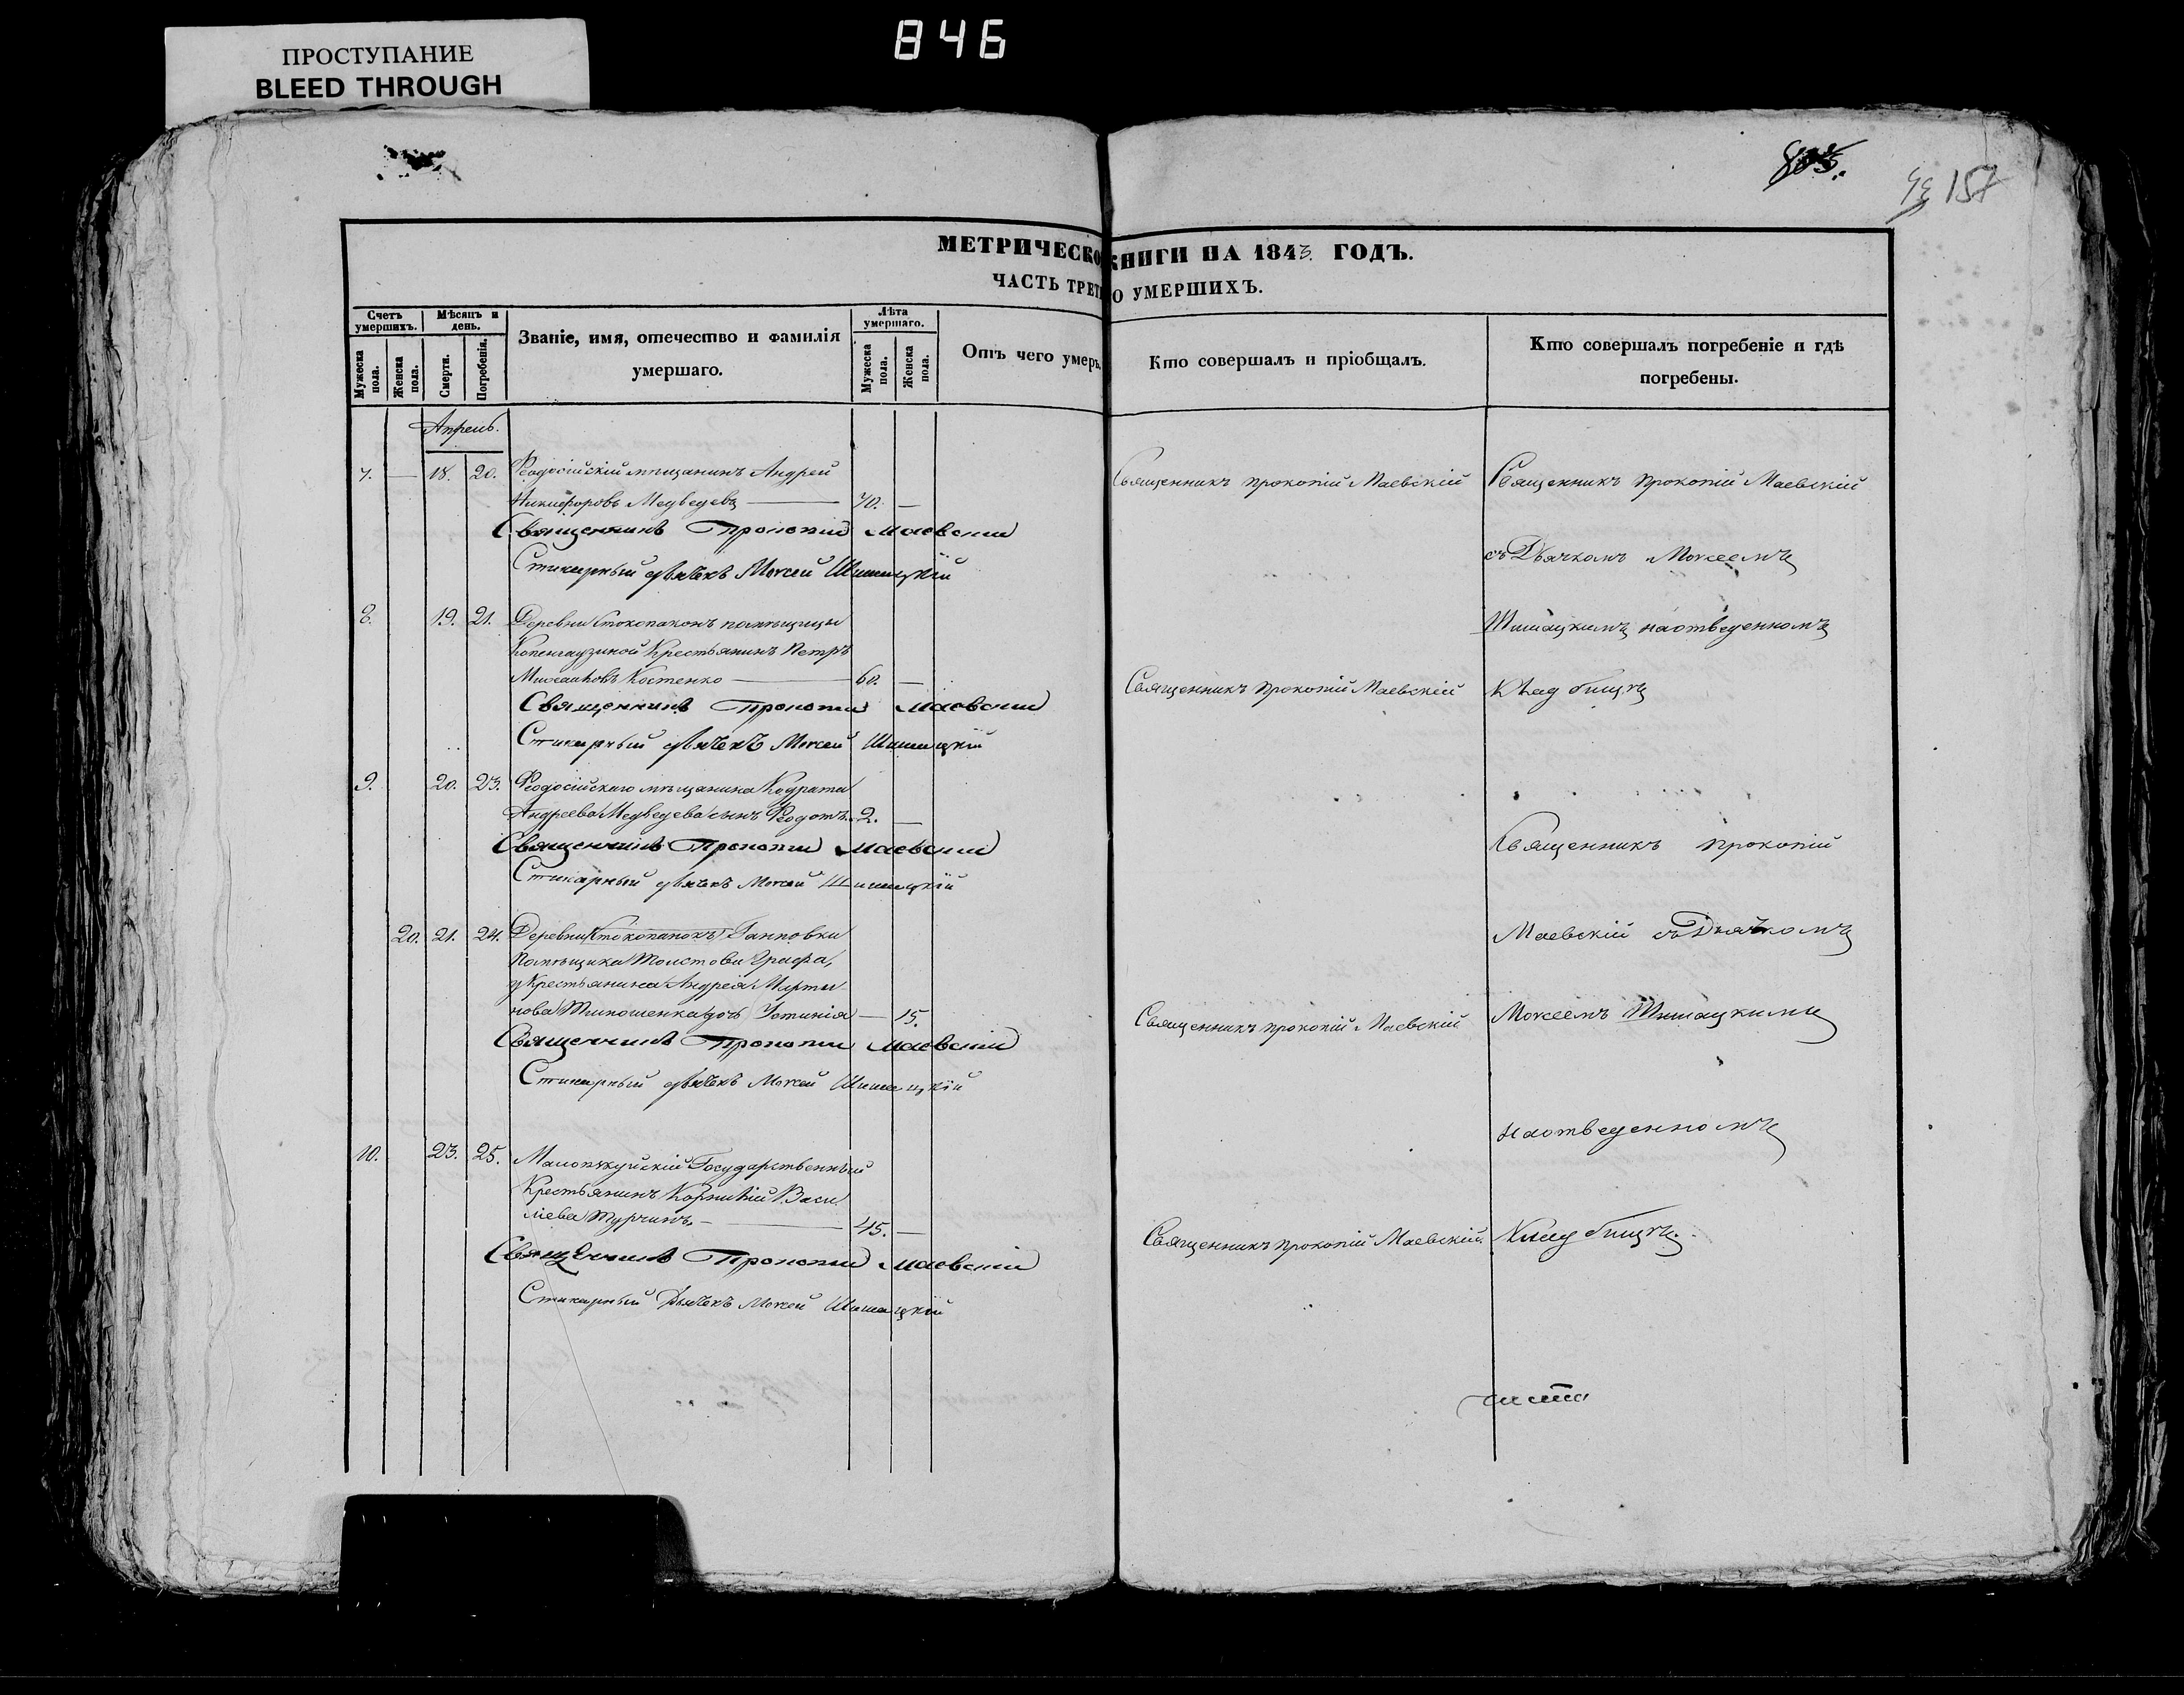 846
ПРОСТУПАНИЕ
BLEED THROUGH
157
МЕТРИЧЕСКО КНИГИ НА 1843. ГОДЪ.
ЧАСТЬ ТРЕТ О УМЕРШИХЪ.
Счетъ умершихъ.
Мужеска пола.
Женска пола.
Мѣсяцъ и день.
Смерти.
Погребенія.
Званіе, имя, отечество и фамилія
умершаго.
Лѣта умершаго.
Мужеска пола.
Женска пола.
Отъ чего умеръ.
Кто совершалъ и пріобщалъ.
Кто совершалъ погребеніе и гдѣ
погребены.
Апрель.
7. — 18. 20. Феодосійскій мѣщанинъ Андрей
Никифоровъ Медведевъ — 70. —
Священникъ Прокопий Маевский
Стихарный дьячекъ Моисей Шишацкій
8. 19. 21. Деревни помѣщицы
Крестьянинъ Петръ
Костенко — 60. —
Священникъ Прокопий Маевский
Стихарный дьячекъ Моисей Шишацкій
9. 20. 23. Феодосійскаго мѣщанина Кодрата
Андреева Медведева сынъ Феодотъ. 2. —
Священникъ Прокопий Маевский
Стихарный дьячекъ Моисей Шишацкій
20. 21. 24. Деревни Ганновки
Помѣщика Толстова Графа,
Крестьянина Андрея Марты-
нова дочь Устинія — 15.
Священникъ Прокопий Маевский
Стихарный дьячекъ Моисей Шишацкій
10. 23. 25. Государственный
Крестьянинъ Корнилій Васи
лiева Турчинъ. — 45. —
Священникъ Прокопий Маевский
Стихарный Дьячекъ Моисей Шишацкій
Священникъ Прокопій Маевскій
Священникъ Прокопій Маевскій
Священникъ Прокопій Маевскій
Священникъ Прокопій Маевскій.
Священникъ Прокопій Маевскій
съ Дьячкомъ Моисеемъ
Шишацкимъ на отведенномъ
кладбищѣ
Священникъ Прокопій
Маевскій съ Дьячкомъ
Моисеемъ Шишацкимъ
на отведенномъ
Кладбищѣ.